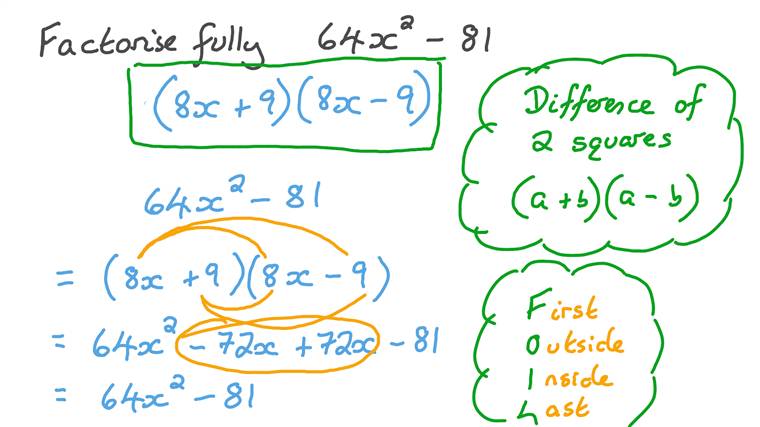 Factorise fully 64x² - 81
(8x + 9)(8x - 9)
Difference of
2 squares
(a + b)(a - b)
64x² - 81
= (8x + 9)(8x - 9)
= 64x² - 72x + 72x - 81
= 64x² - 81
First
Outside
Inside
Last